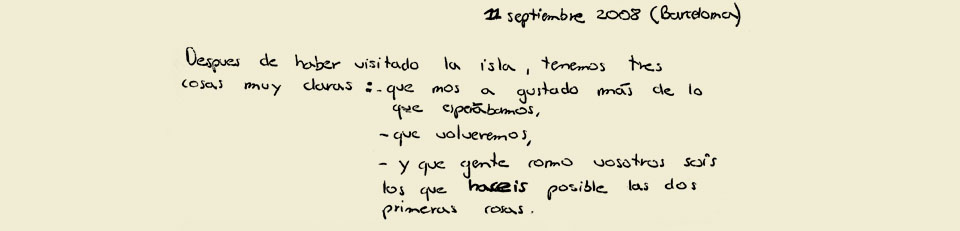 11 septiembre 2008 (Barcelona)
Despues de haber visitado la isla, tenemos tres
cosas muy claras :- que mos a gustado más de lo
que esperábamos,
- que volveremos,
- y que gente como vosotros sois
los que haceis posible las dos
primeras cosas.